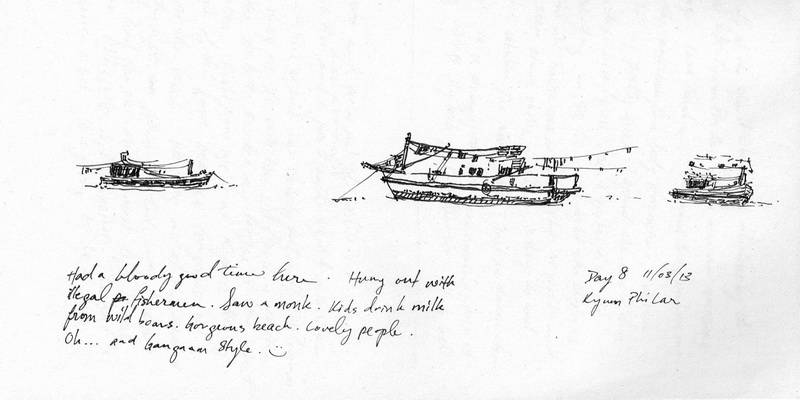 Had a bloody good time here. Hung out with
illegal fishermen. Saw a monk. Kids drink milk
from wild boars. Gorgeous beach. Lovely people.
Oh... and Gangnam Style. :)
Day 8 11/03/13
Kyunn Phi Lar